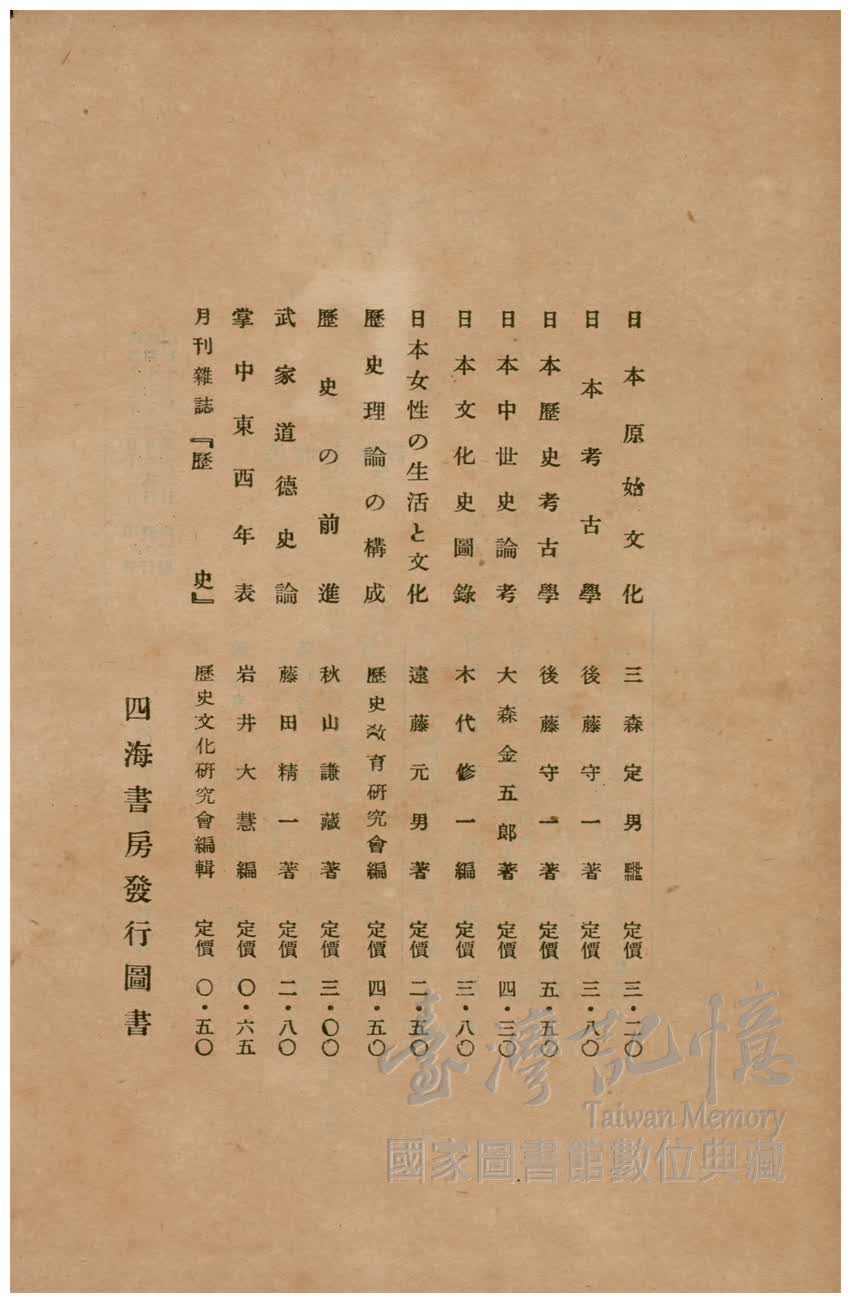 日本原始文化 三森定男 定價 三・二〇
日本考古學 後藤守一著 定價 三・八〇
日本歷史考古學 後藤守一著 定價 五・五〇
日本中世史論考 大森金五郎著 定價 四・三〇
日本文化史圖錄 木代修一編 定價 三・八〇
日本女性の生活と文化 遠藤元男著 定價 二・五〇
歷史理論の構成 歷史敎育硏究會編 定價 四・五〇
歷史の前進 秋山謙藏著 定價 三・〇〇
武家道德史論 藤田精一著 定價 二・八〇
掌中東西年表 岩井大慧編 定價 〇・六五
月刊雜誌『歷史』 歷史文化硏究會編輯 定價 〇・五〇
四海書房發行圖書
臺灣記憶
Taiwan Memory
國家圖書館數位典藏